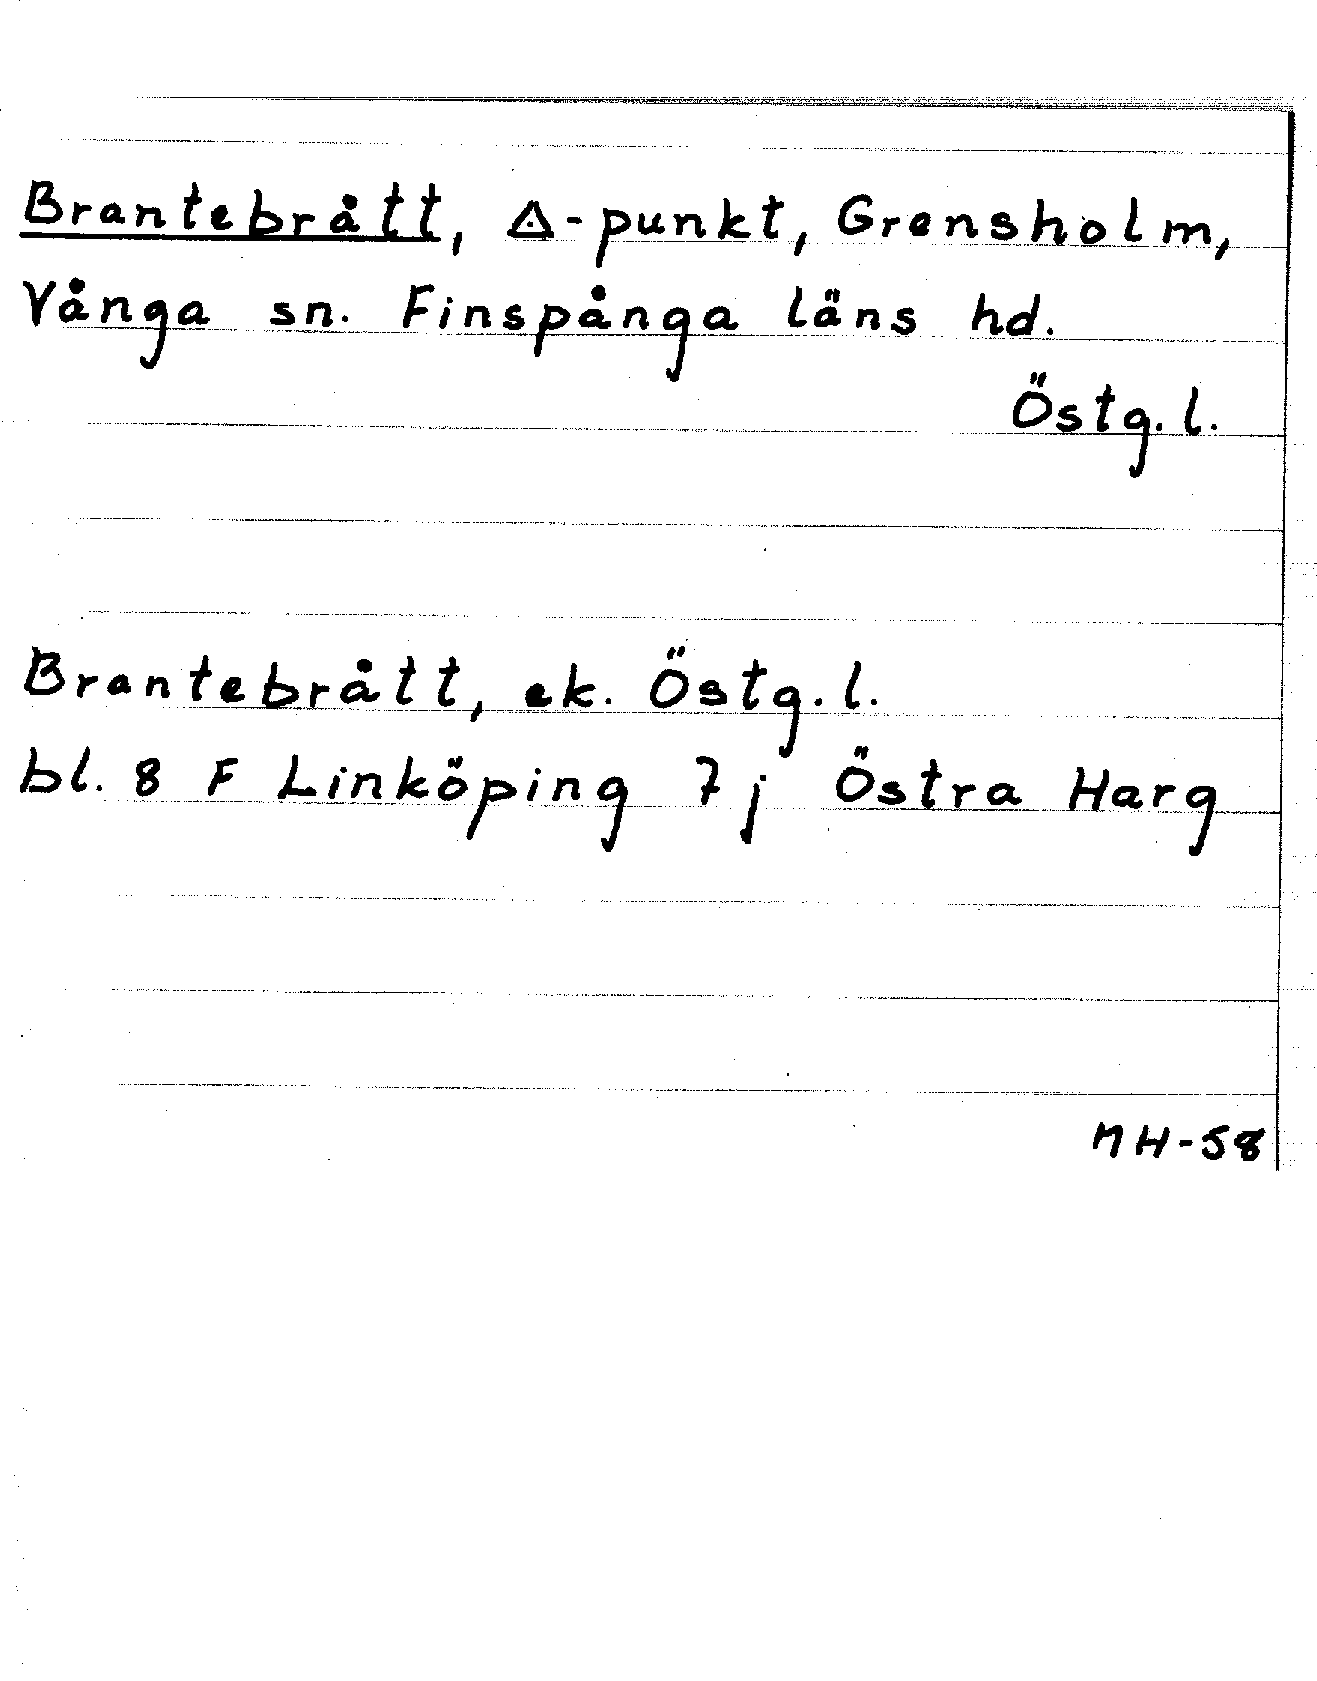 Brantebrått, ◬-punkt, Grensholm,
Vånga sn. Finspånga läns hd.
Östg. l.
Brantebrått, ek. Östg. l.
bl. 8 F Linköping 7 j Östra Harg
MH-58